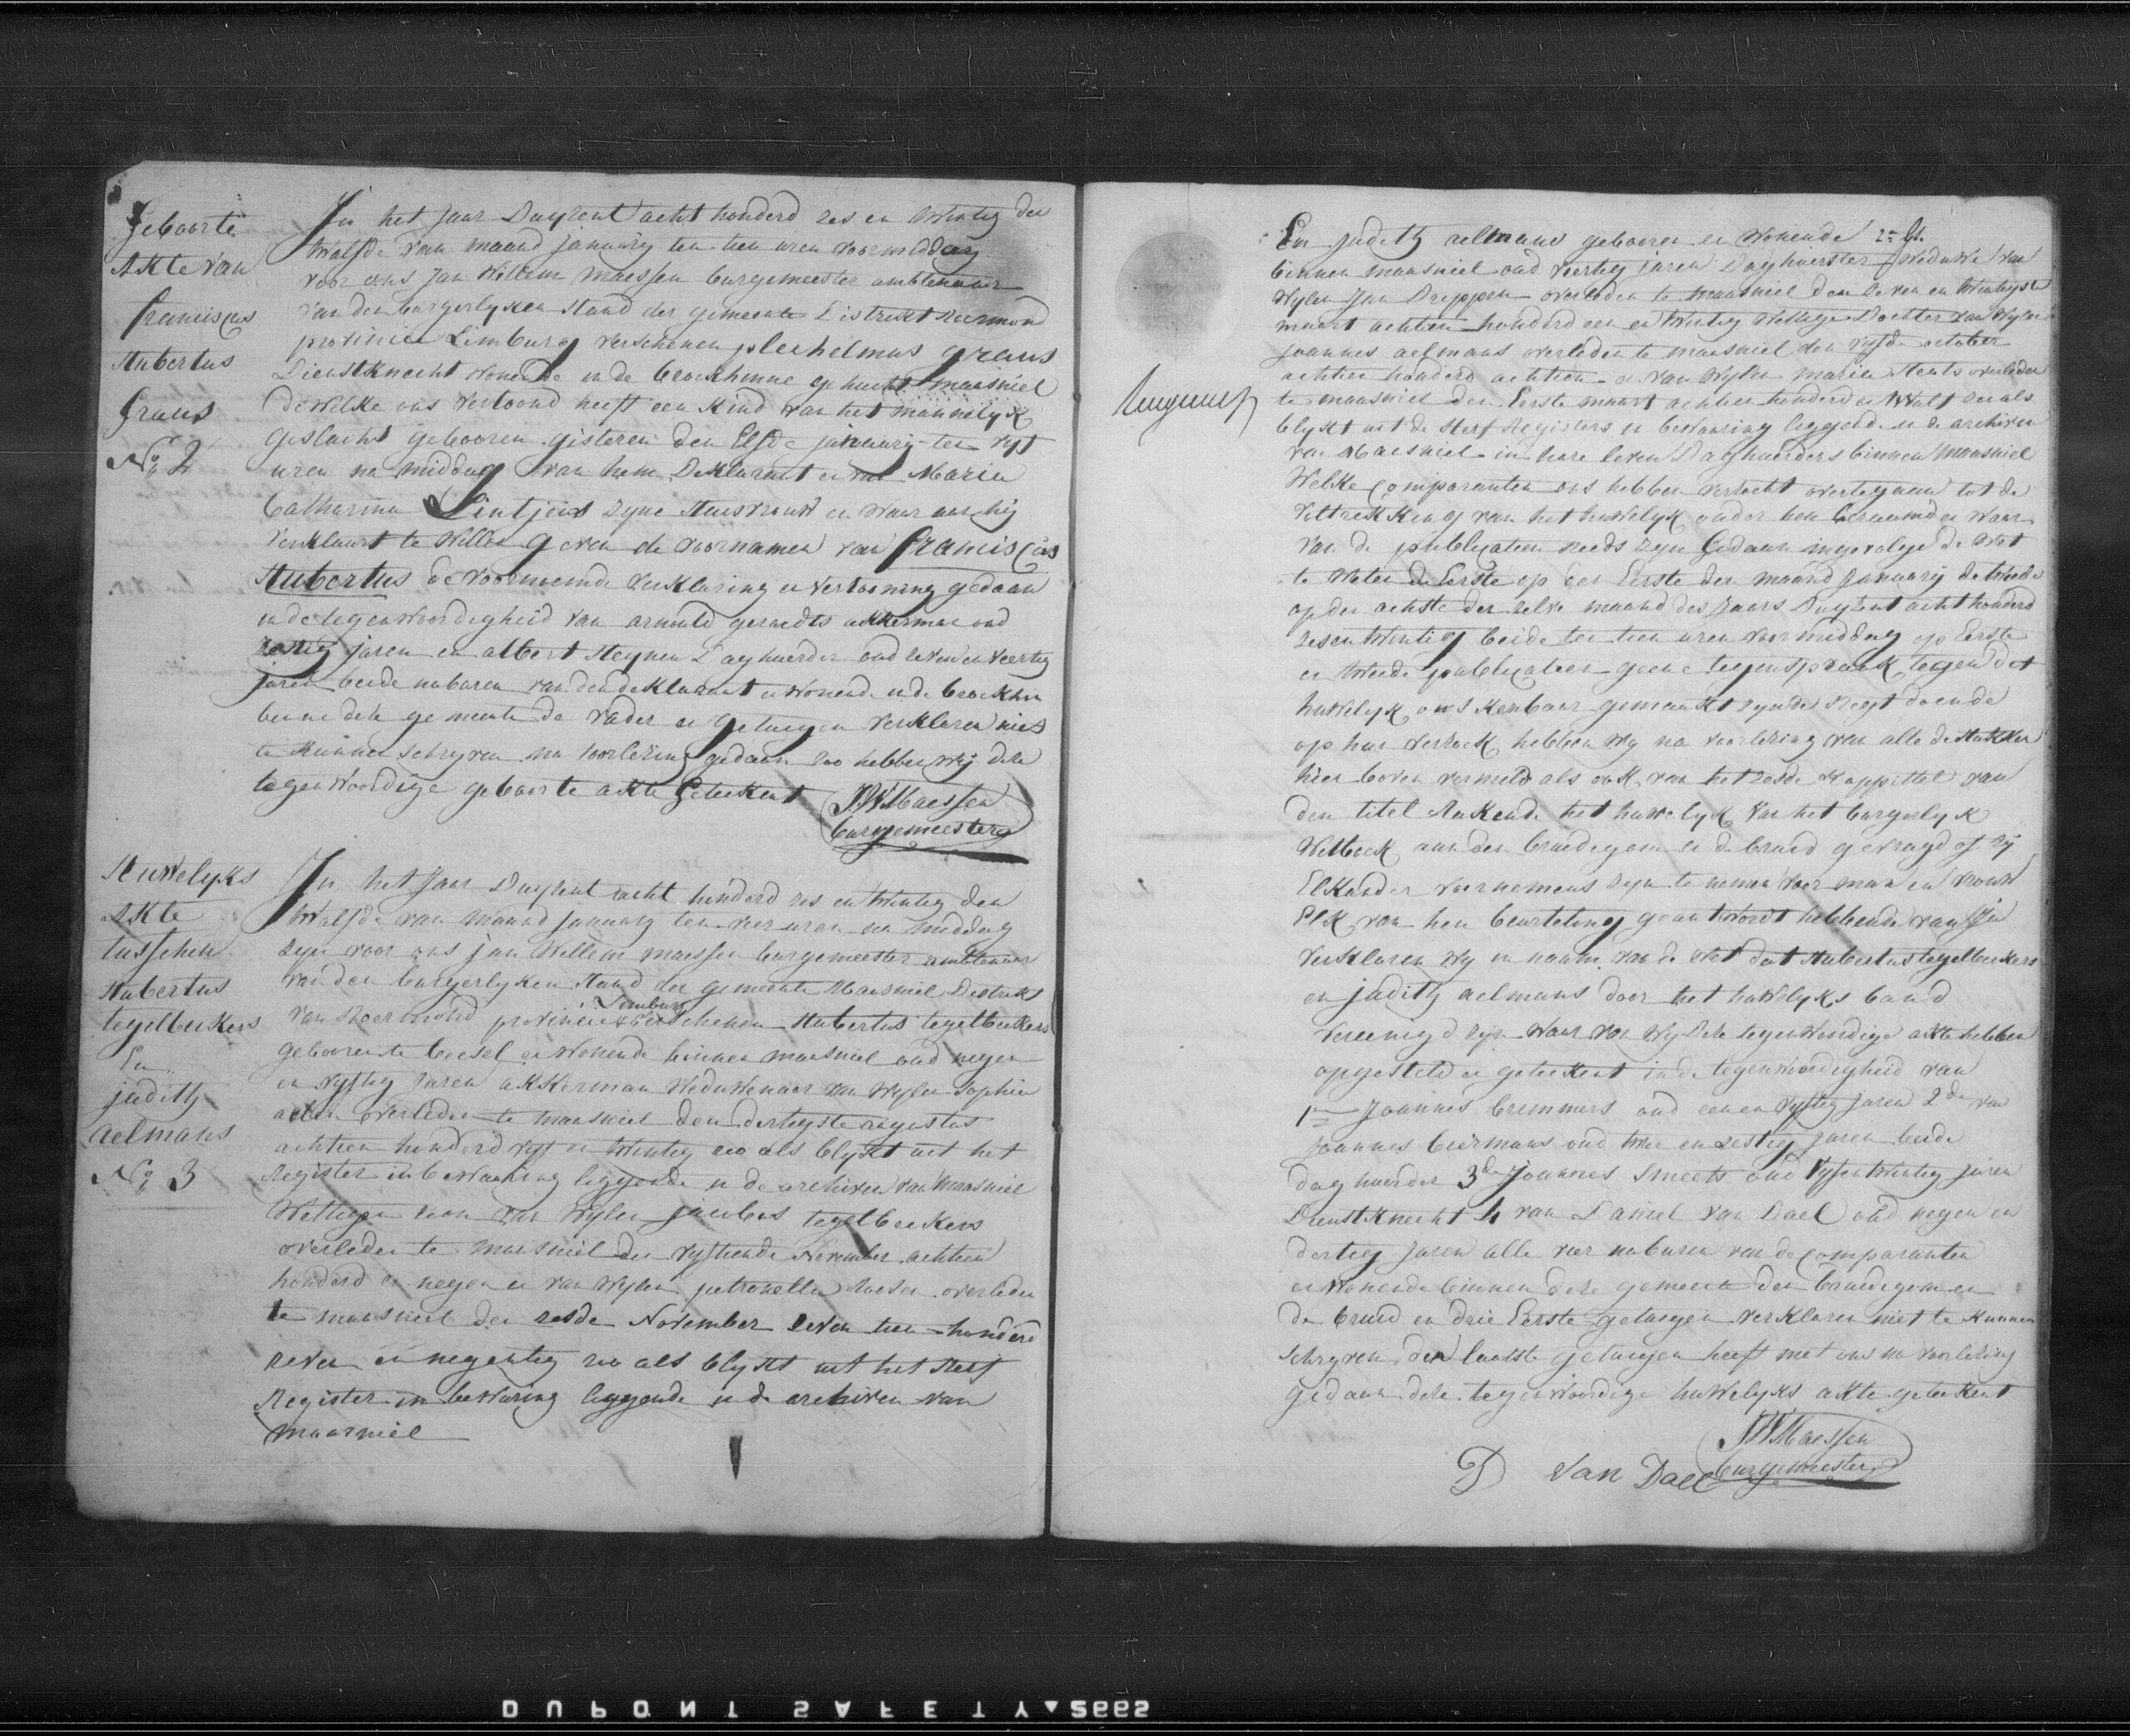 Geboorte
Akte van
franciscus
Hubertus
Graus
No 2
In het Jaar Duyzent acht honderd zes en twintig den
twalfde van maand january ten tien uren voormiddag
voor ons Jan Willem Maessen burgemeester ambtenaar
van den burgerlyken stand der gemeente Distrikt Roermond
provincie Limburg verschenen plechelmus graus
Dienstknecht wonende in de broekhinne gehucht maasniel
dewelke ons vertoond heeft een kind van het mannelyk
geslacht gebooren gisteren den Elfde january ten vyf
uren na middag van hem Deklarant en van Maria
Catharina Lintjens zyne Huisvrouw en waar aan hij
verklaart te willen geven de voornamen van franciscus
Hubertus de voornoemde verklaring en vertooning gedaan
in de tegenwoordigheid van arnold geraedts akkerman oud
jaren en albert Heynen Daghuerder oud zeven en veertig
jaren beide naburen van den deklarant en wonende in de broekhin
binne deze gemeente de vader en getuigen verklaren niet
te kunnen schryven na voorlezing gedaan zoo hebben wij deze
tegenwoordige geboorte akte geteekent JWMaessen
burgemeester
Huwelyks
Akte
tusschen
Hubertus
tegelbeckers
En
judith
aelmans
No 3
In het Jaar Duyzent acht honderd zes en twintig den
twalfde van maand january ten vier uren na middag
zyn voor ons jan Willem maessen burgemeester ambtenaar
van den burgerlyken stand der gemeente Maasniel Distrikt
van Roermond provincie Limburg verschenen Hubertus tegelbeckers
gebooren te beesel en wonende binnen maasniel oud negen
en vyftig Jaren akkerman Weduwenaar van wylen Sophia
overleden te maasniel den dertigste augustus
achtien honderd vyf en twintig zoo als blykt uit het
Register in bewaaring liggende in de archiven van maasniel
Wettigen zoon van wylen jacobus tegelbeckers
overleden te maasniel den vyftiende November achtien
honderd en negen en van wylen petronella overleden
te maasniel den zesde November zeven tien honderd
zeven en negentig zoo als blykt uit het sterf
Register in bewaring liggende in de archiven van
maasniel
En judith aelmans gebooren en wonende 2e bl.
binnen maasniel oud veertig jaren Daghuerster Weduwe van
Wylen Jan Dreppen overleden te maasniel den zeven en twintigste
maart achtien honderd een en twintig Wettige Dochter van Wylen
Joannes aelmans overleden te maasniel den vyfde october
achtien honderd achtien en van Wylen maria overleden
te maasniel den Eerste maart achtien honderd en twalf zoo als
blykt uit de sterf Registers in bewaaring liggende in de archiven
van Maasniel in hare leven Daghuerders binnen Maasniel
Welke Comparanten ons hebben verzocht overtegaen tot de
voltrekking van het huwelyk onder hen beraamd en waar
van de publicatien reeds zyn Gedaan ingevolge de wet
te weten de Eerste op den Eerste der maand January de tweede
op den achtste der zelve maand des Jaars Duyzent acht honderd
zesentwintig beide ten tien uren voormiddag op Eerste
en tweede publicatien geene tegenspraak tegen dit
huwelyk ons kenbaar gemaakt zynde Regt doende
op hun verzoek hebben wy na voorlezing van alle de stukken
hier boven vermeld als ook van het zesde kappittel van
den titel Rakende het huwelyk van het burgerlyk
Wetboek aan den bruidegom en de bruid gevraagd of zij
Elkander voornemens zyn te nemen voor man en vrouw
Elk van hen beurteling geantwoordt hebbende van Ja
verklaren wy in naam van de wet dat Hubertus tegelbeckers
en judith aelmans door het huwelyks band
vereenigd zyn waar van wy deze tegenwoordige akte hebben
opgesteld en geteekent in de tegenwoordigheid van
1en Joannes bremmers oud een en vyftig jaren 2de van
Joannes biermans oud twee en zestig jaren beide
daghuerder 3de Joannes Smeets oud vyfentwintig jaren
Dienstknecht 4 van Daniel van Dael oud negen en
dertig jaren alle vier naburen van de Comparanten
en wonende binnen deze gemeente den bruidegom en
de bruid en drie Eerste getuigen verklaren niet te kunnen
schryven, den laatste getuigen heeft met ons na voorlezing
gedaan deze tegenwoordige huwelyks akte geteekent
JWMaessen
burgemeester
D van Dael
DUPONT SAFETY